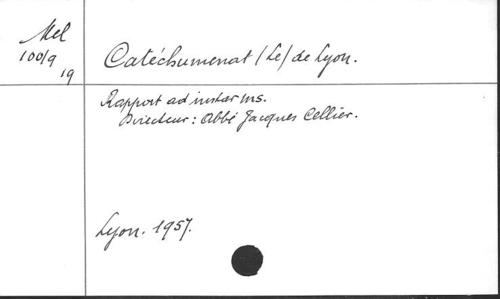 Mel
100/9
19
Catéchumenat (Le) de Lyon.
Rapport ad instar ms.
Directeur: Abbé Jacques Cellier.
Lyon. 1957.